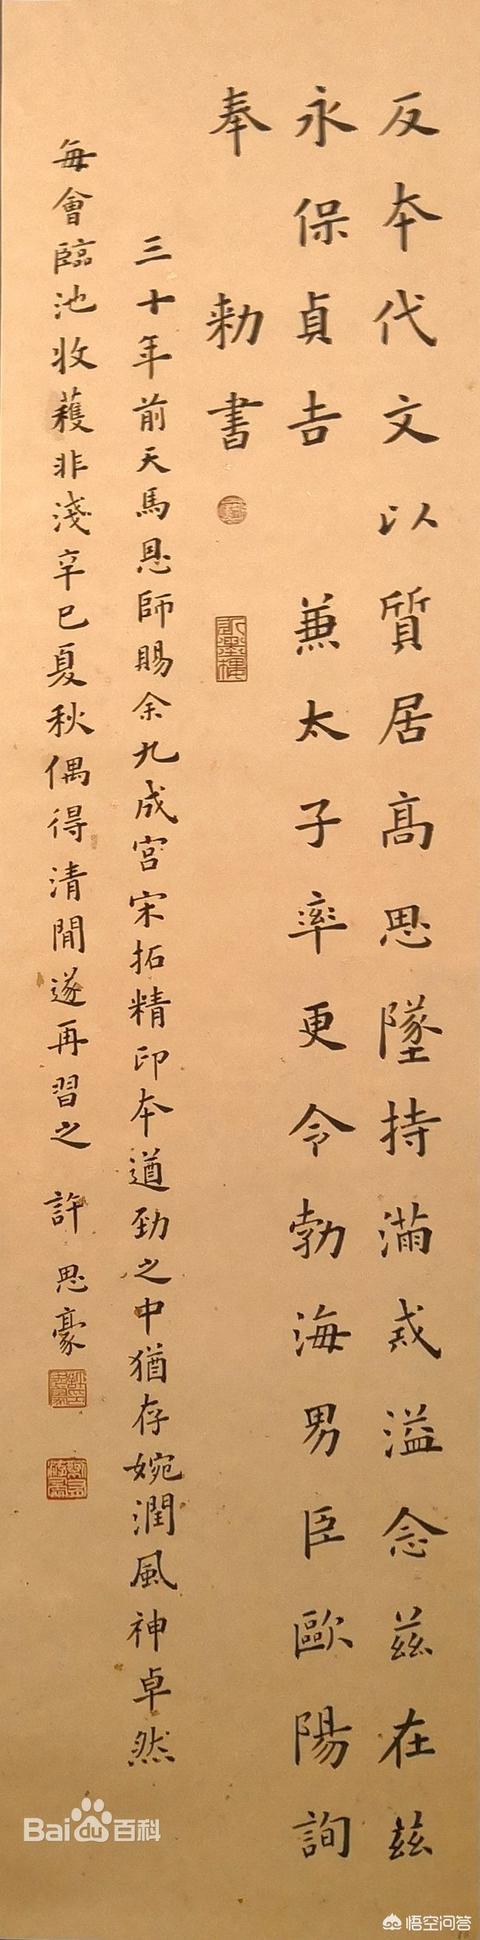 反本代文以質居髙思墜持滿戒溢念茲在茲
永保貞吉　兼太子率更令勃海男臣歐陽詢
奉　勅書
三十年前天馬恩師賜余九成宮宋拓精印本遒勁之中猶存婉潤風神卓然
每會臨池收蘒非淺辛巳夏秋偶得清閒遂再習之　許思豪
Bai百科
悟空问答